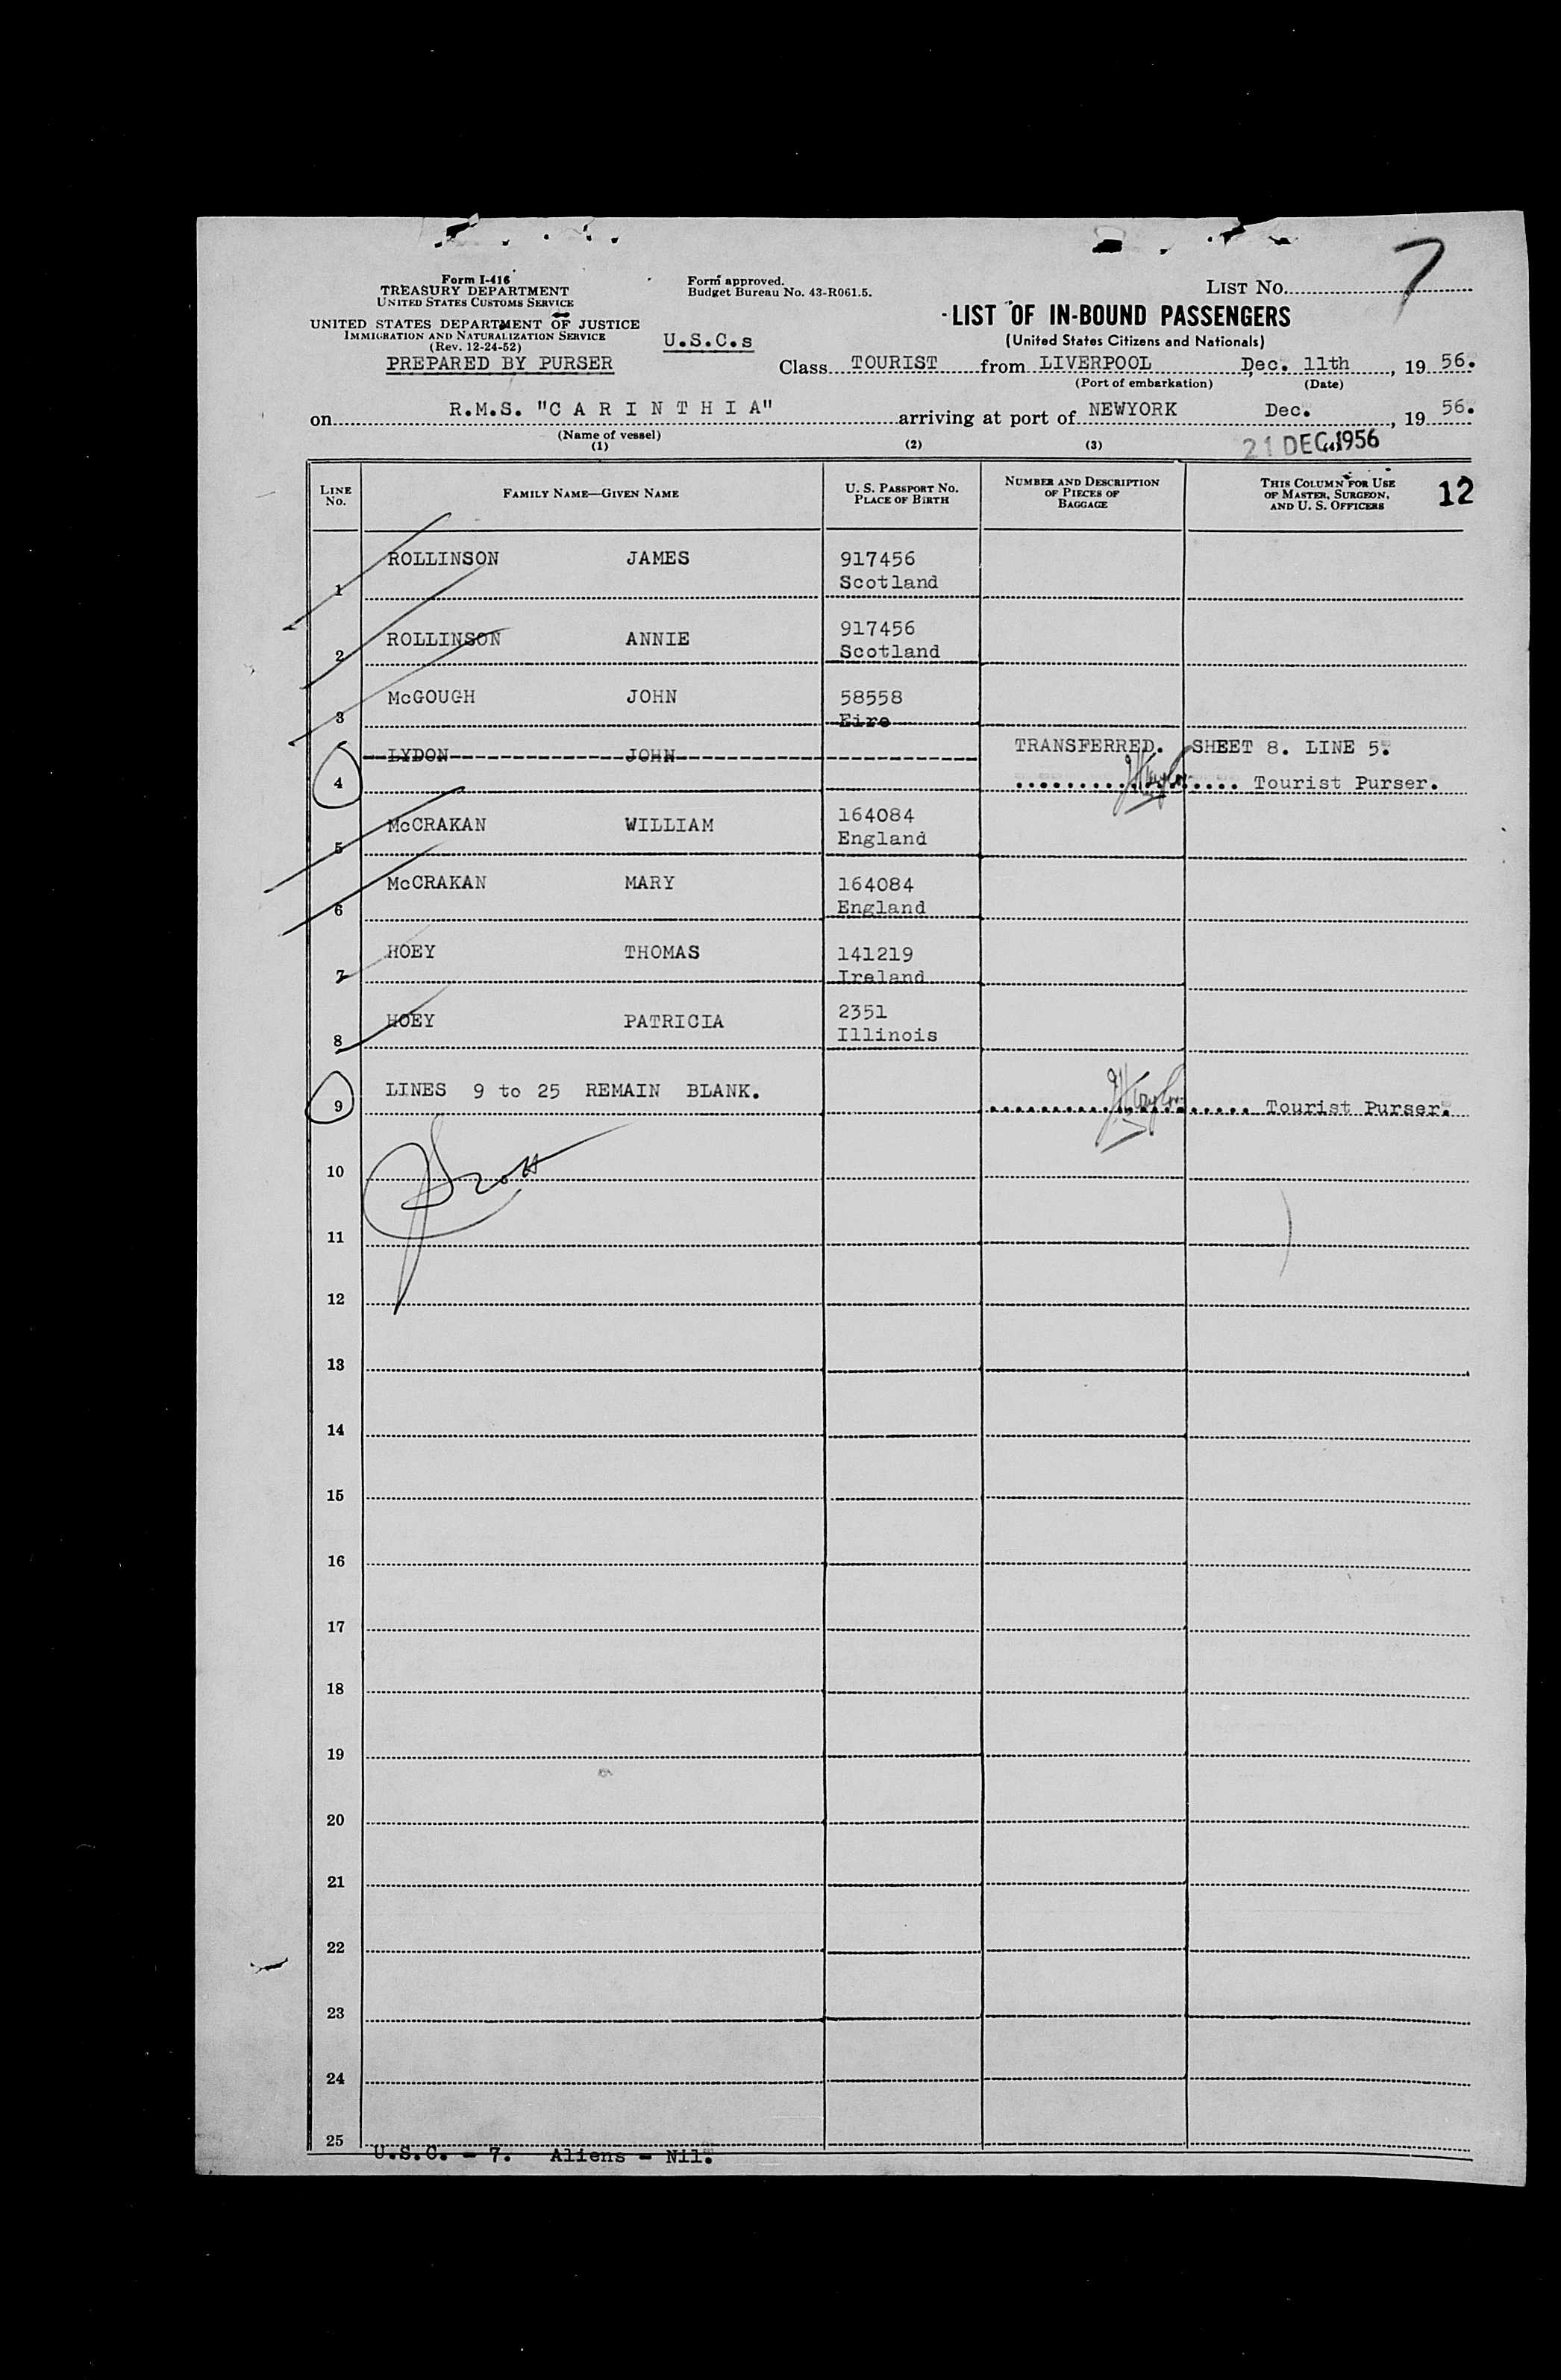 Form I-416
TREASURY DEPARTMENT
UNITED STATES CUSTOMS SERVICE
UNITED STATES DEPARTMENT OF JUSTICE
IMMIGRATION AND NATURALIZATION SERVICE
(Rev. 12-24-52)
PREPARED BY PURSER
Form approved.
Budget Bureau No. 43-R061.5.
U.S.C.s
LIST No. 7
LIST OF IN-BOUND PASSENGERS
(United States Citizens and Nationals)
Class TOURIST from LIVERPOOL Dec. 11th, 19 56.
(Port of embarkation) (Date)
on R.M.S. "C A R I N T H I A" arriving at port of NEWYORK Dec. , 19 56.
(Name of vessel)
(1) (2) (3) 21 DEC 1956
LINE No. FAMILY NAME—GIVEN NAME U. S. PASSPORT NO. PLACE OF BIRTH NUMBER AND DESCRIPTION OF PIECES OF BAGGAGE THIS COLUMN FOR USE OF MASTER, SURGEON, AND U. S. OFFICERS 12
1 ROLLINSON JAMES 917456
Scotland
2 ROLLINSON ANNIE 917456
Scotland
3 McGOUGH JOHN 58558
Eire
4 LYDON JOHN TRANSFERRED. SHEET 8. LINE 5.
Tourist Purser.
5 McCRAKAN WILLIAM 164084
England
6 McCRAKAN MARY 164084
England
7 HOEY THOMAS 141219
Ireland
8 HOEY PATRICIA 2351
Illinois
9 LINES 9 to 25 REMAIN BLANK.
Tourist Purser.
10
11
12
13
14
15
16
17
18
19
20
21
22
23
24
25
U.S.C. - 7. Aliens - Nil.